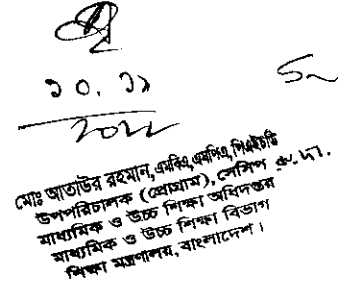 ১০. ১১
মোঃ আতাউর রহমান, এমবিএ, এমপিএ, পিএইচডি
উপপরিচালক (প্রোগ্রাম), সেসিপ
মাধ্যমিক ও উচ্চ শিক্ষা অধিদপ্তর
মাধ্যমিক ও উচ্চ শিক্ষা বিভাগ
শিক্ষা মন্ত্রণালয়, বাংলাদেশ।